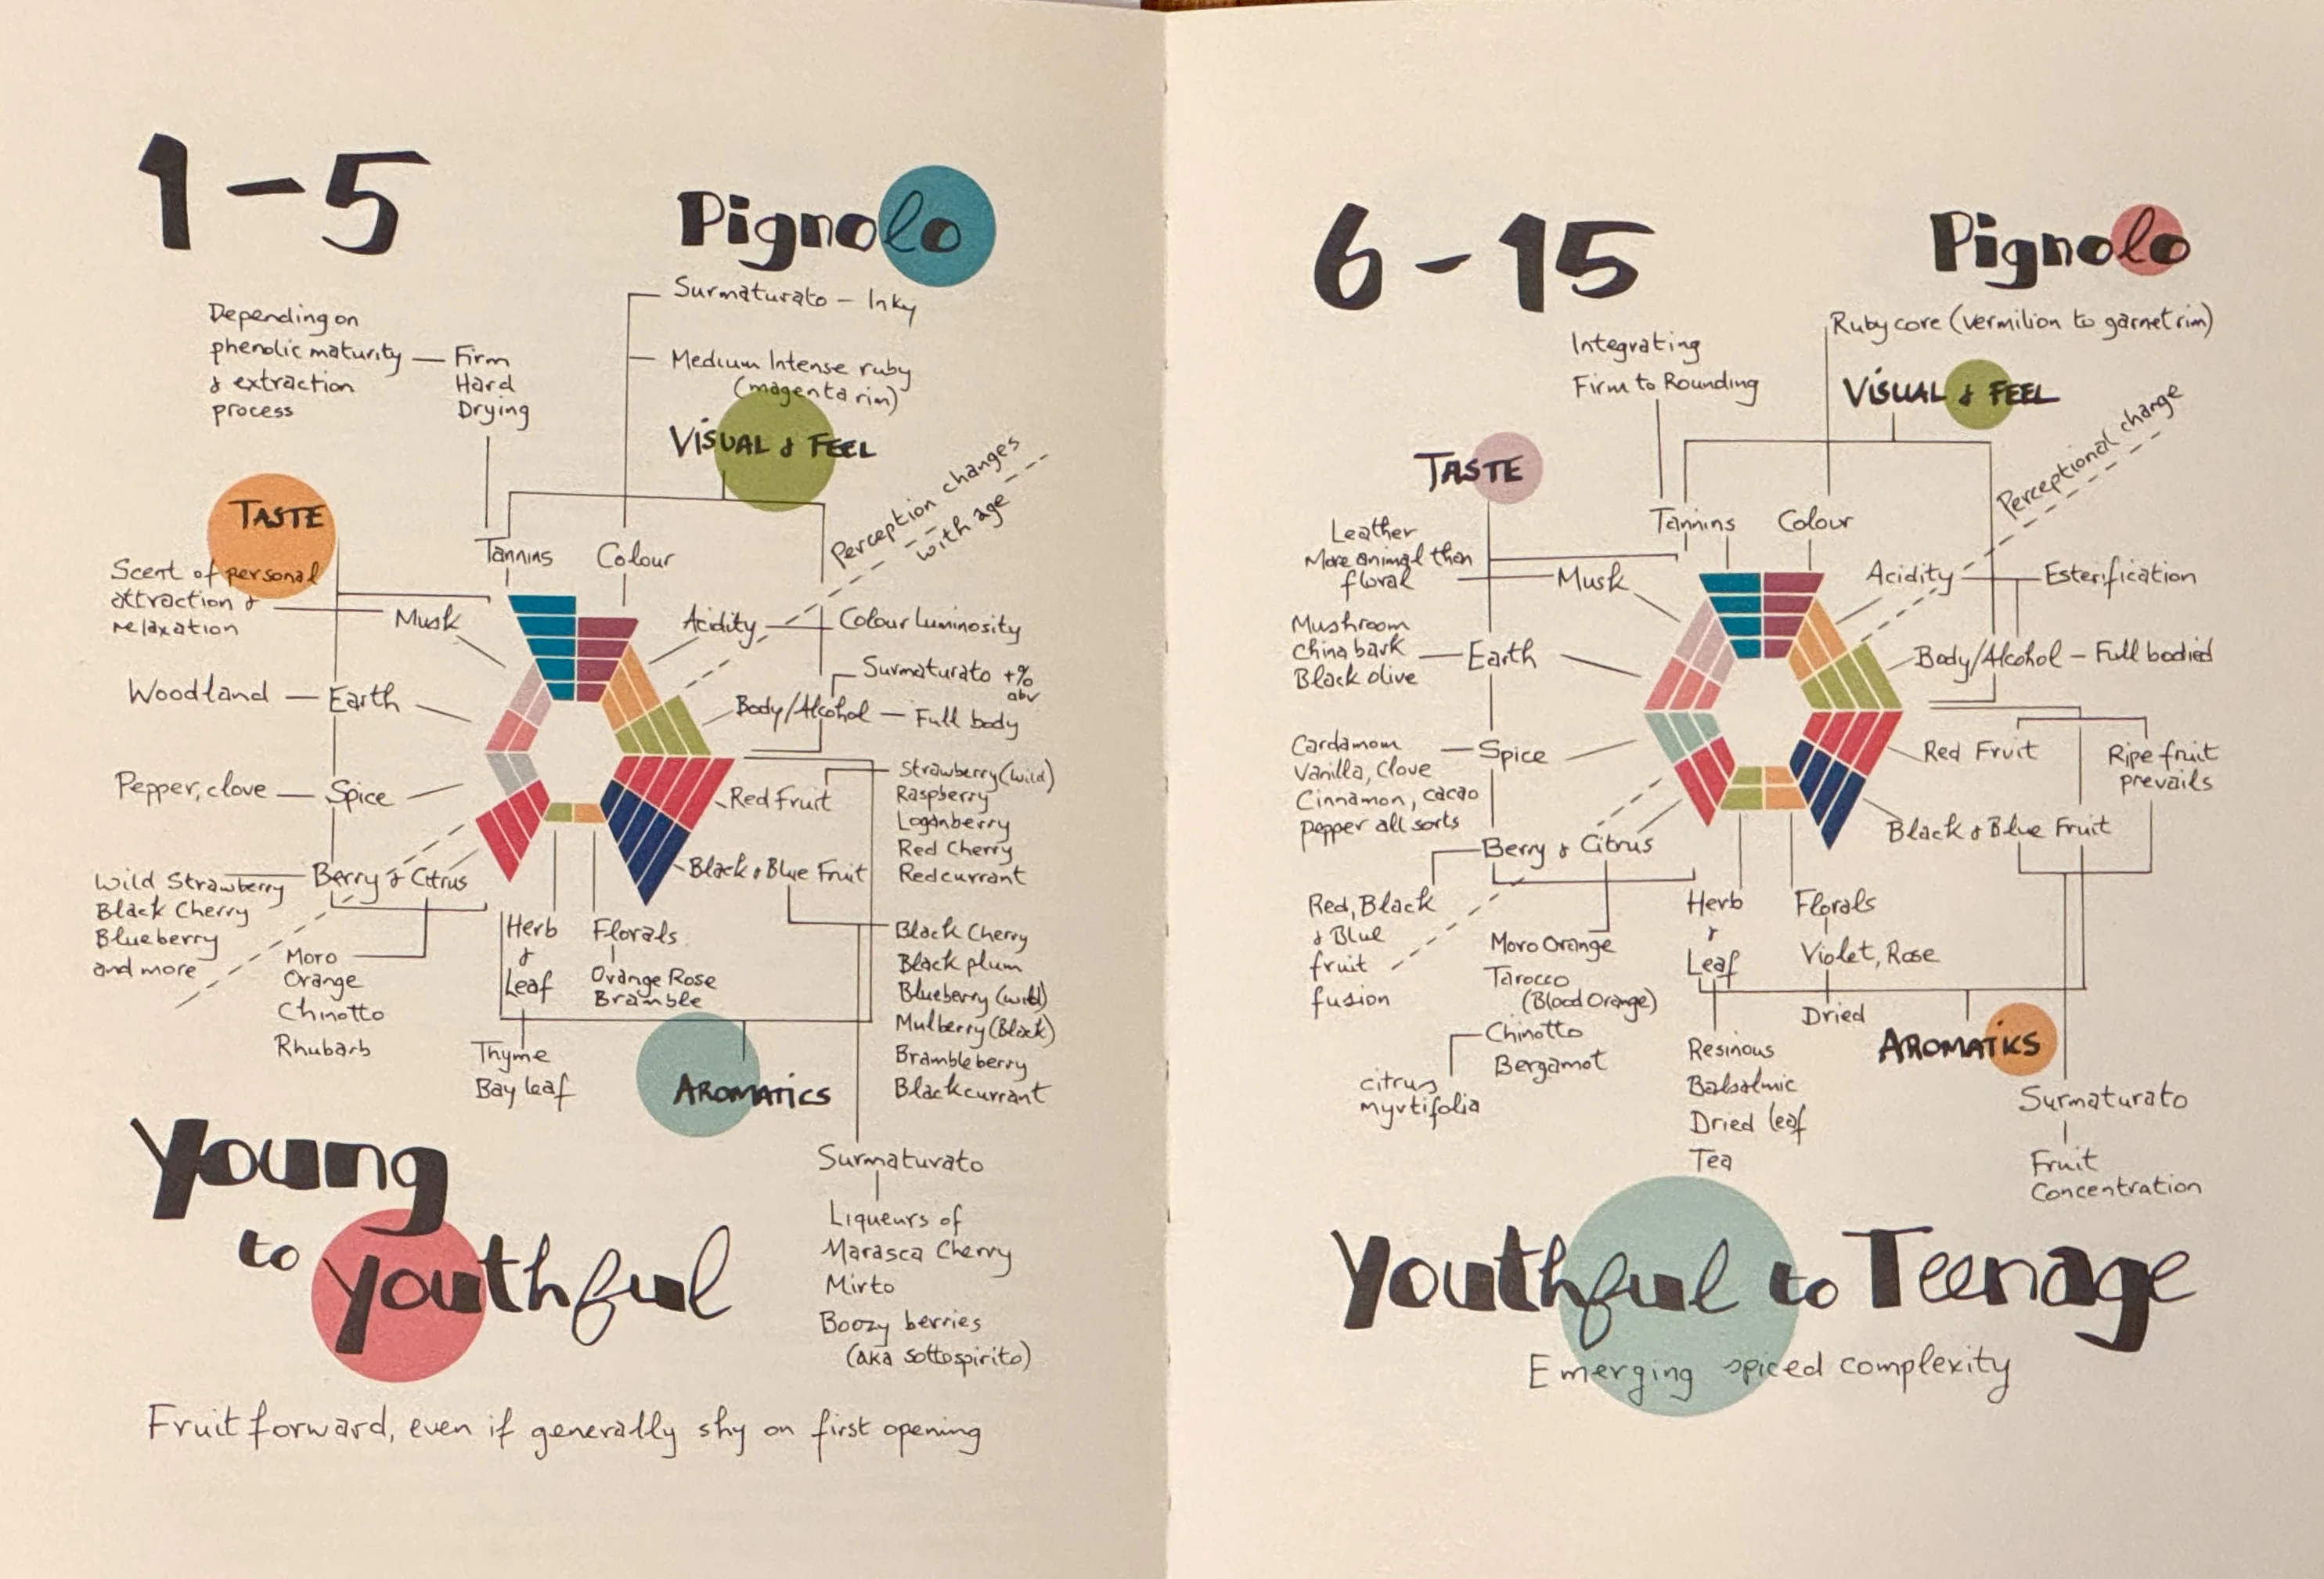 1-5
Pignolo
Surmaturato - Inky
Medium Intense ruby
(magenta rim)
Depending on
phenolic maturity
& extraction
process
Firm
Hard
Drying
VISUAL & FEEL
Perception changes
with age
TASTE
Tannins
Colour
Scent of personal
attraction &
relaxation
Musk
Acidity
Colour Luminosity
Surmaturato +%
abv
Woodland
Earth
Body/Alcohol - Full body
Pepper, clove
Spice
Red Fruit
Strawberry (wild)
Raspberry
Loganberry
Red Cherry
Redcurrant
Berry & Citrus
Wild Strawberry
Black Cherry
Blueberry
and more
Moro
Orange
Chinotto
Rhubarb
Black & Blue Fruit
Herb
&
Leaf
Thyme
Bay leaf
Florals
Orange Rose
Bramble
Black Cherry
Black plum
Blueberry (wild)
Mulberry (Black)
Brambleberry
Blackcurrant
AROMATICS
Surmaturato
Liqueurs of
Marasca Cherry
Mirto
Boozy berries
(aka sottospirito)
Young
to youthful
Fruit forward, even if generally shy on first opening
6-15
Pignolo
Ruby core (vermilion to garnet rim)
Integrating
Firm to Rounding
VISUAL & FEEL
Perceptional change
TASTE
Tannins
Colour
Leather
More animal than
floral
Musk
Acidity
Esterification
Mushroom
China bark
Black olive
Earth
Body/Alcohol - Full bodied
Cardamom
Vanilla, Clove
Cinnamon, cacao
pepper all sorts
Spice
Red Fruit
Ripe fruit
prevails
Berry & Citrus
Black & Blue Fruit
Red, Black
& Blue
fruit
fusion
Moro Orange
Tarocco
(Blood Orange)
Chinotto
Bergamot
citrus
myrtifolia
Herb
&
Leaf
Resinous
Balsalmic
Dried leaf
Tea
Florals
Violet, Rose
Dried
AROMATIKS
Surmaturato
Fruit
Concentration
Youthful to Teenage
Emerging spiced complexity